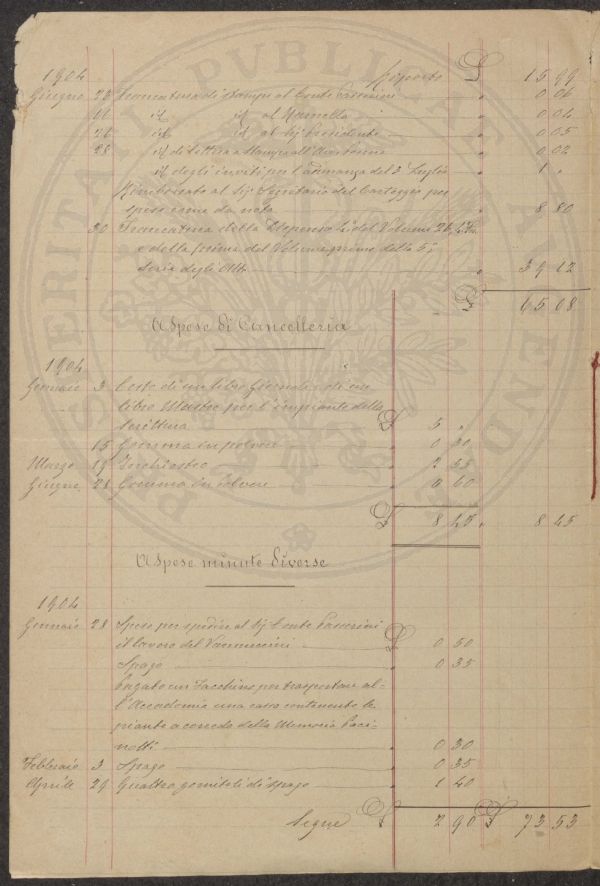 1904 Riporto £ 15 99
Giugno 23 Francatura di stampe al Conte Passerini " 0 06
" id id al Ramella " 0 04
26 id id al Sig Presidente " 0 05
28 id di lettera e stampe all' " 0 02
id degli inviti per l'adunanza del 3 Luglio " 1 "
Rimborsato al Sig Segretario del Carteggio per
spese come da nota " 8 80
30 Francatura della Dispensa 4a del Volume 26,
e della prima del Volume primo della 5a
serie degli Atti " 39 12
£ 65 08
A Spese di Cancelleria
1904
Gennaio 3 Costo di un libro Giornale e di un
libro Mastro per l'impianto della
Scrittura £ 5 "
15 Gomma in polvere " 0 30
Marzo 19 Inchiostro " 2 55
Giugno 21 Gomma in polvere " 0 60
£ 8 45 " 8 45
A Spese minute diverse
1904
Gennaio 28 Spese per spedire al Sig Conte Passerini
il lavoro del Vannuccini £ 0 50
Spago " 0 35
Pagato un facchino per trasportare al-
l'Accademia una cassa contenente le
piante a corredo della Memoria Paci-
notti " 0 30
Febbraio 3 Spago " 0 35
Aprile 29 Quattro gomitoli di spago " 1 40
Segue £ 2 90 £ 73 53
PROSPERITATI PUBLICAE AUGENDAE